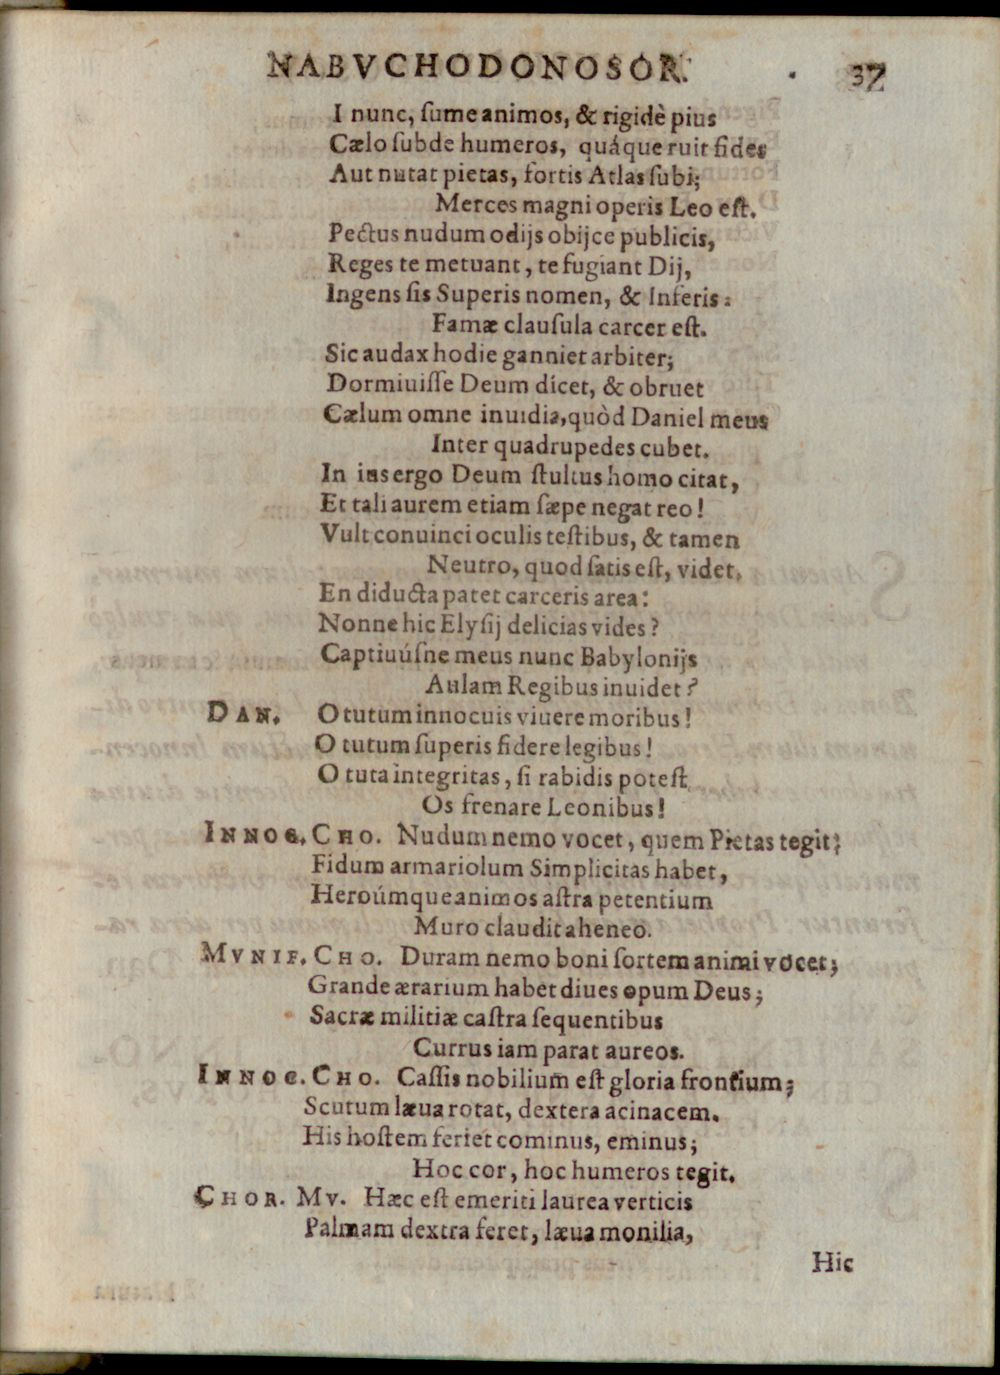 NABVCHODONOSOR. 37
I nunc, ſume animos, & rigidè pius
Cælo ſubde humeros, quáque ruit fides
Aut nutat pietas, fortis Atlas ſubi;
Merces magni operis Leo eſt.
Pectus nudum odijs obijce publicis,
Reges te metuant, te fugiant Dij,
Ingens ſis Superis nomen, & Inferis:
Famæ clauſula carcer eſt.
Sic audax hodie ganniet arbiter;
Dormiuiſſe Deum dicet, & obruet
Cælum omne inuidia, quòd Daniel meus
Inter quadrupedes cubet.
In ius ergo Deum ſtultus homo citat,
Et tali aurem etiam ſæpe negat reo!
Vult conuinci oculis teſtibus, & tamen
Neutro, quod ſatis eſt, videt.
En diducta patet carceris area:
Nonne hic Elyſij delicias vides?
Captiuúſne meus nunc Babylonijs
Aulam Regibus inuidet?
DAN. O tutum innocuis viuere moribus!
O tutum ſuperis fidere legibus!
O tuta integritas, ſi rabidis poteſt
Os frenare Leonibus!
INNOC. CHO. Nudum nemo vocet, quem Pietas tegit;
Fidum armariolum Simplicitas habet,
Heroúmque animos aſtra petentium
Muro claudit aheneo.
MVNIF. CHO. Duram nemo boni ſortem animi vocet;
Grande ærarium habet diues opum Deus;
Sacræ militiæ caſtra ſequentibus
Currus iam parat aureos.
INNOC. CHO. Caſſis nobilium eſt gloria frontium;
Scutum læua rotat, dextera acinacem.
His hoſtem feriet cominus, eminus;
Hoc cor, hoc humeros tegit.
CHOR. MV. Hæc eſt emeriti laurea verticis
Palmam dextra feret, læua monilia,
Hic